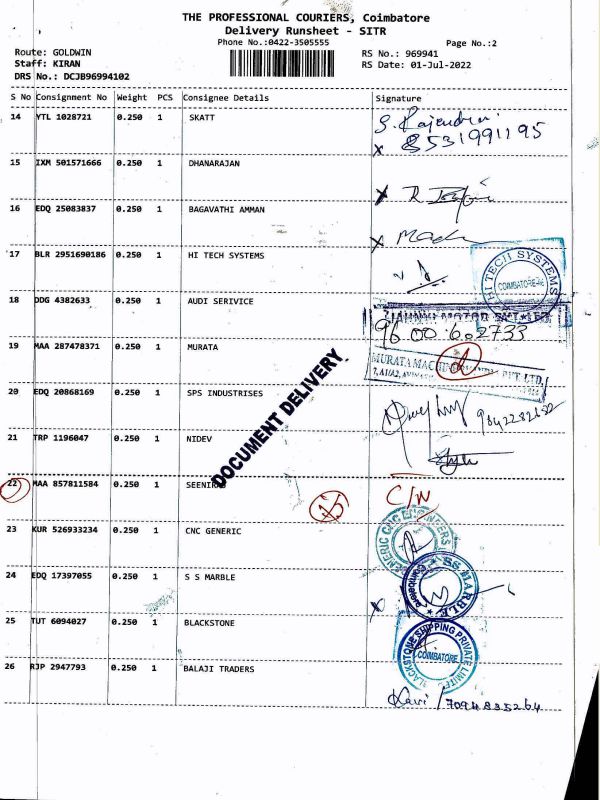 THE PROFESSIONAL COURIERS, Coimbatore
Delivery Runsheet - SITR
Phone No.:0422-3505555
Page No.:2
Route: GOLDWIN
RS No.: 969941
Staff: KIRAN
RS Date: 01-Jul-2022
DRS No.: DCJB96994102
S No Consignment No Weight PCS Consignee Details Signature
14 YTL 1028721 0.250 1 SKATT
S. Rajendran
X 8531991195
15 IXM 501571666 0.250 1 DHANARAJAN
X R
16 EDQ 25083837 0.250 1 BAGAVATHI AMMAN
X
17 BLR 2951690186 0.250 1 HI TECH SYSTEMS
HI TECH SYSTEMS
COIMBATORE
18 DDG 4382633 0.250 1 AUDI SERIVICE
MOTOR
96 00 6 02733
19 MAA 287478371 0.250 1 MURATA
MURATA MAC PVT. LTD.
20 EDQ 20868169 0.250 1 SPS INDUSTRISES
DOCUMENT DELIVERY
21 TRP 1196047 0.250 1 NIDEV
22 MAA 857811584 0.250 1
C/N
23 KUR 526933234 0.250 1 CNC GENERIC
GENERIC CNC ENGINEERS
24 EDQ 17397055 0.250 1 S S MARBLE
SS MARBLE
Coimbatore
X
25 TUT 6094027 0.250 1 BLACKSTONE
BLACKSTONE SHIPPING PRIVATE LIMITED
COIMBATORE
26 RJP 2947793 0.250 1 BALAJI TRADERS
Ravi / 7094835264